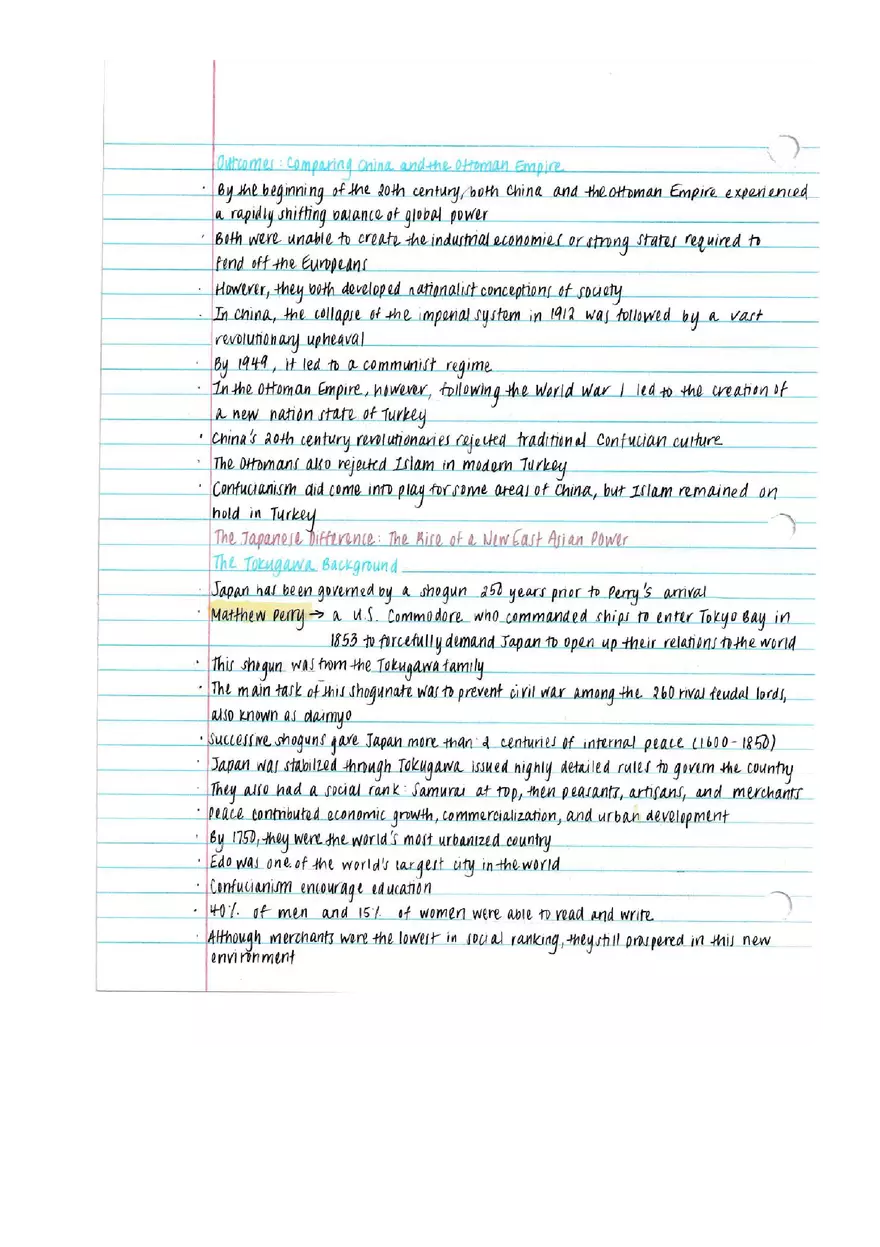 Outcomes: Comparing China and the Ottoman Empire
· By the beginning of the 20th century, both China and the Ottoman Empire experienced
a rapidly shifting balance of global power
· Both were unable to create the industrial economies or strong states required to
fend off the Europeans
· However, they both developed nationalist conceptions of society
· In China, the collapse of the imperial system in 1912 was followed by a vast
revolutionary upheaval
· By 1949, it led to a communist regime
· In the Ottoman Empire, however, following the World War 1 led to the creation of
a new nation state of Turkey
· China's 20th century revolutionaries rejected traditional Confucian culture
· The Ottomans also rejected Islam in modern Turkey
· Confucianism did come into play for some areas of China, but Islam remained on
hold in Turkey
The Japanese Difference: The Rise of a New East Asian Power
The Tokugawa Background
· Japan has been governed by a shogun 250 years prior to Perry's arrival
· Matthew Perry → a U.S. Commodore who commanded ships to enter Tokyo Bay in
1853 to forcefully demand Japan to open up their relations to the world
· This shogun was from the Tokugawa family
· The main task of this shogunate was to prevent civil war among the 260 rival feudal lords,
also known as daimyo
· Successive shoguns gave Japan more than 2 centuries of internal peace (1600-1850)
· Japan was stabilzed through Tokugawa issued highly detailed rules to govern the country
· They also had a social rank: Samurai at top, then peasants, artisans, and merchants
· Peace contributed economic growth, commercialization, and urban development
· By 1750, they were the world's most urbanized country
· Edo was one of the world's largest city in the world
· Confucianism encourage education
· 40% of men and 15% of women were able to read and write
· Although merchants were the lowest in social ranking, they still prospered in this new
environment